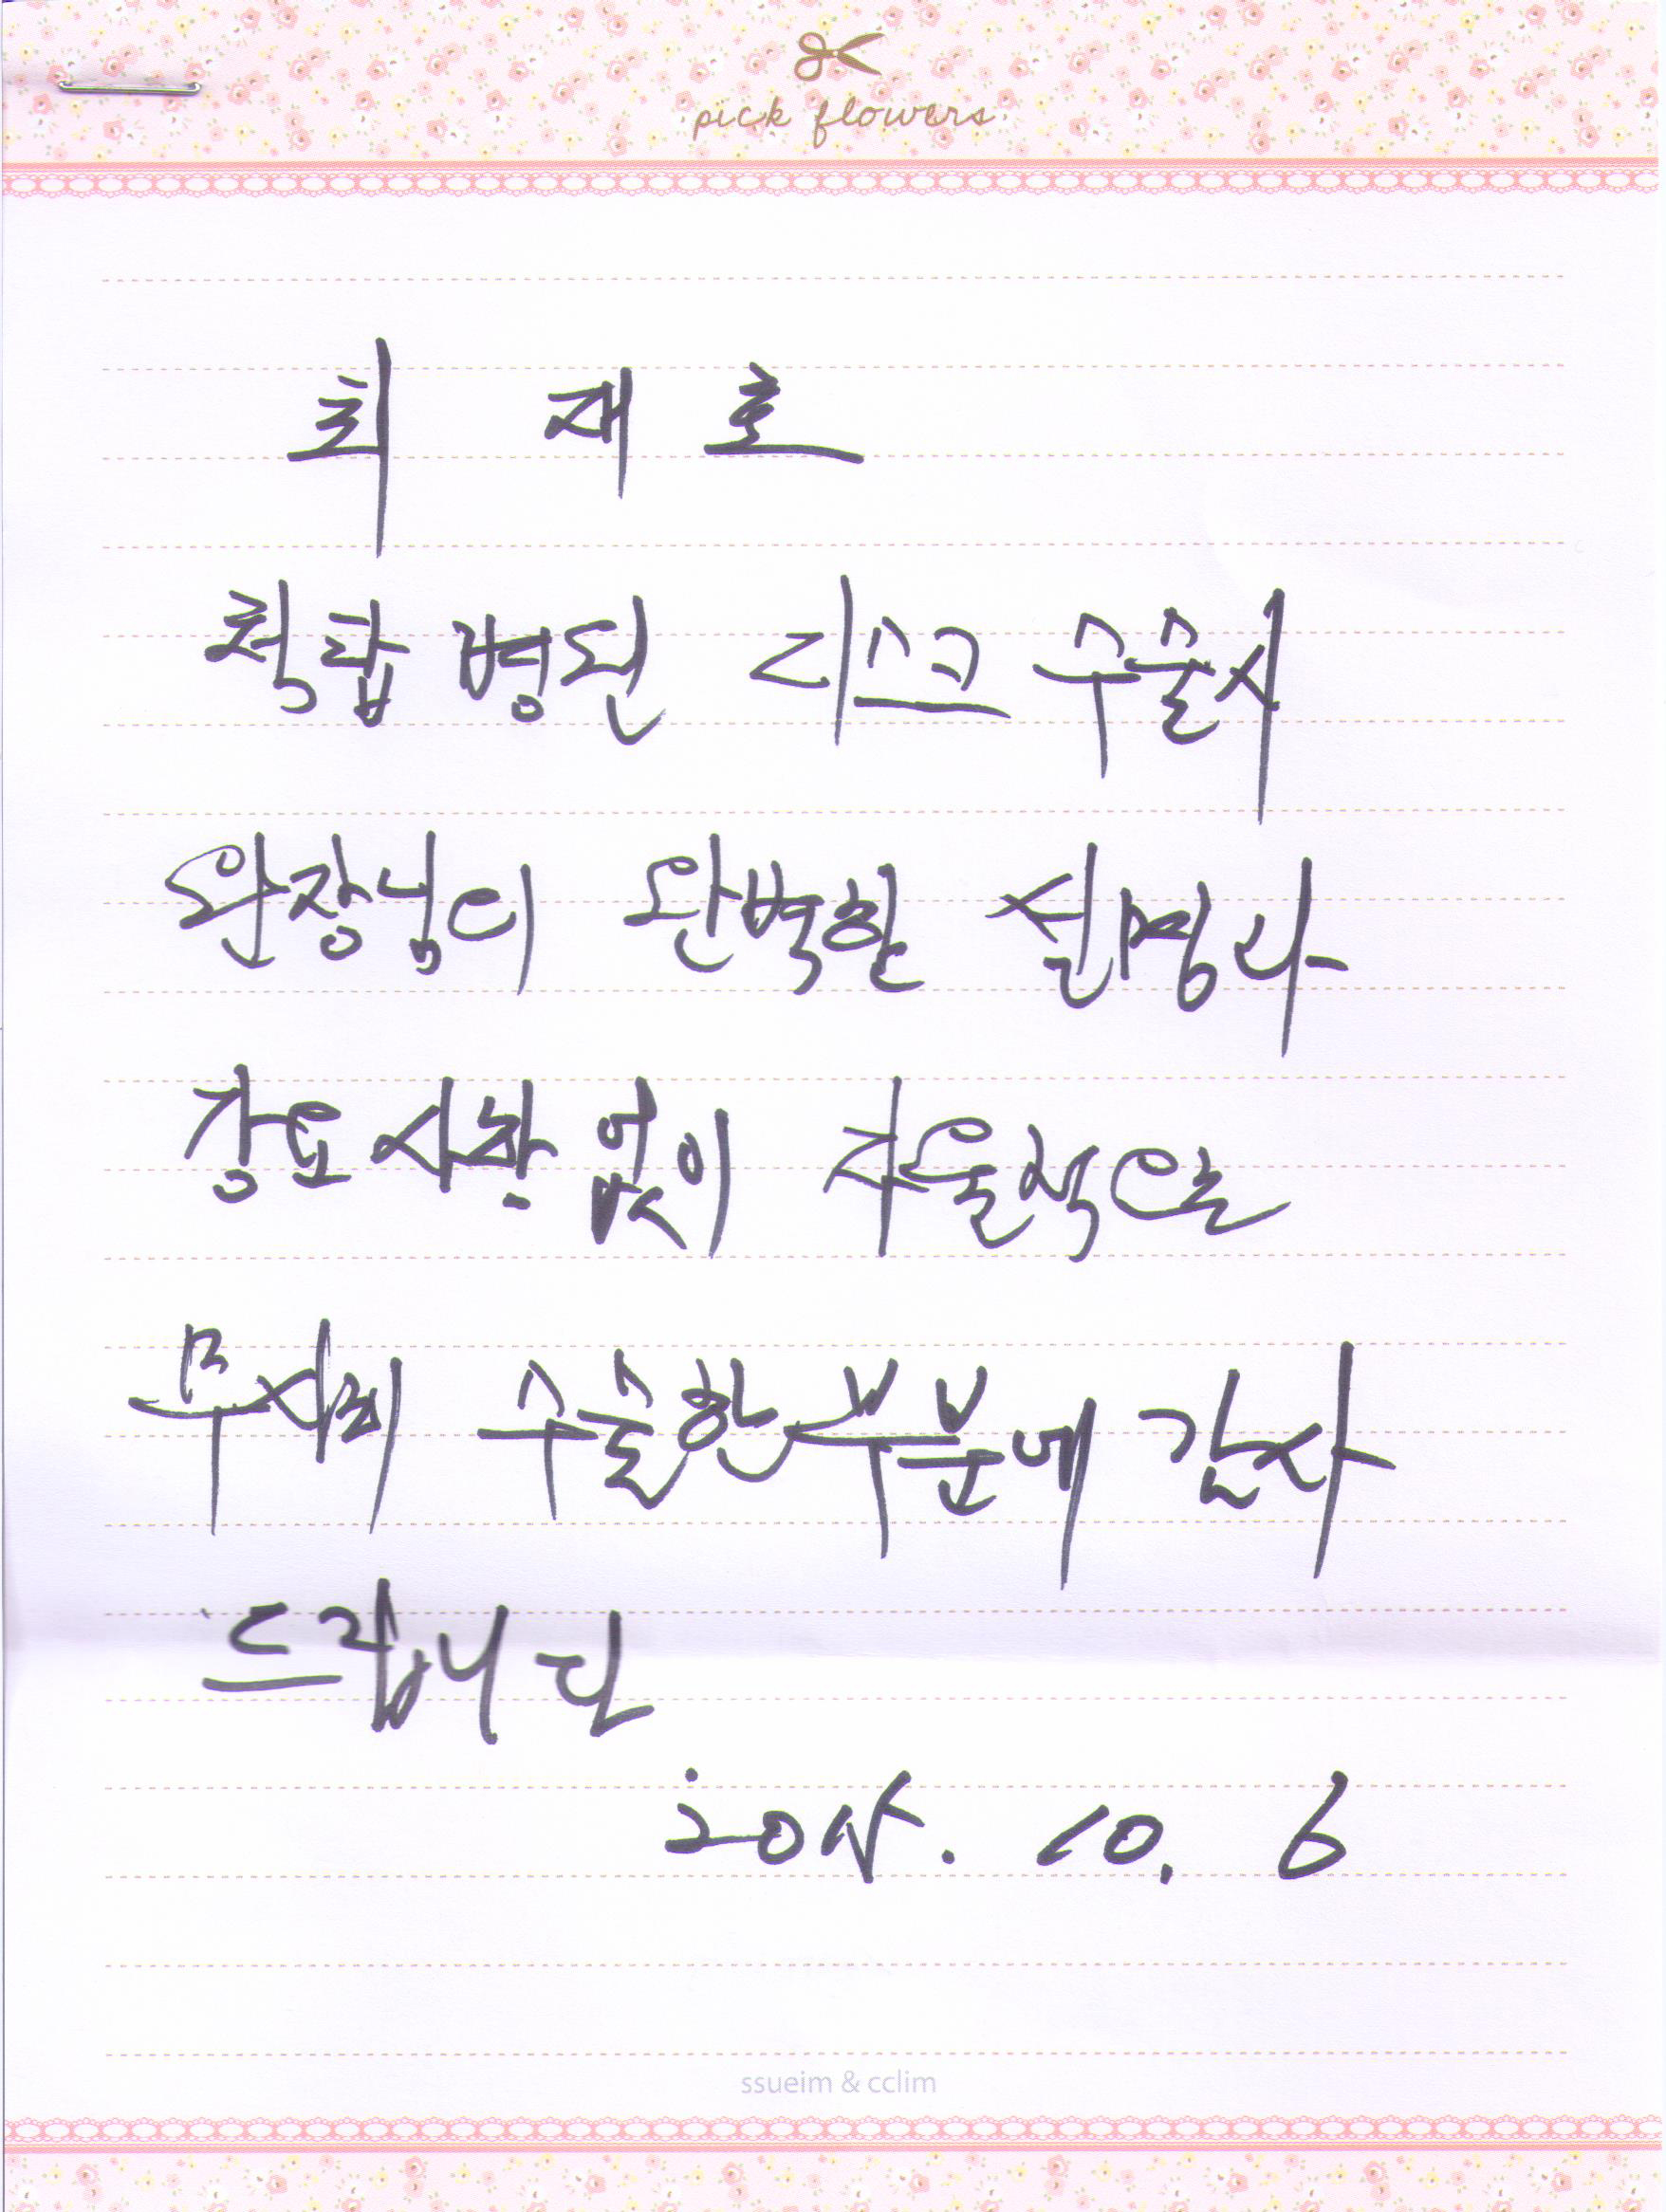 pick flowers
최 재호
척합병된 디스크 수술시
원장님이 완벽한 설명과
강요사항없이 자율적으로
무사히 수술한부분에 감사
드립니다
2015. 10. 6
ssueim & cclim